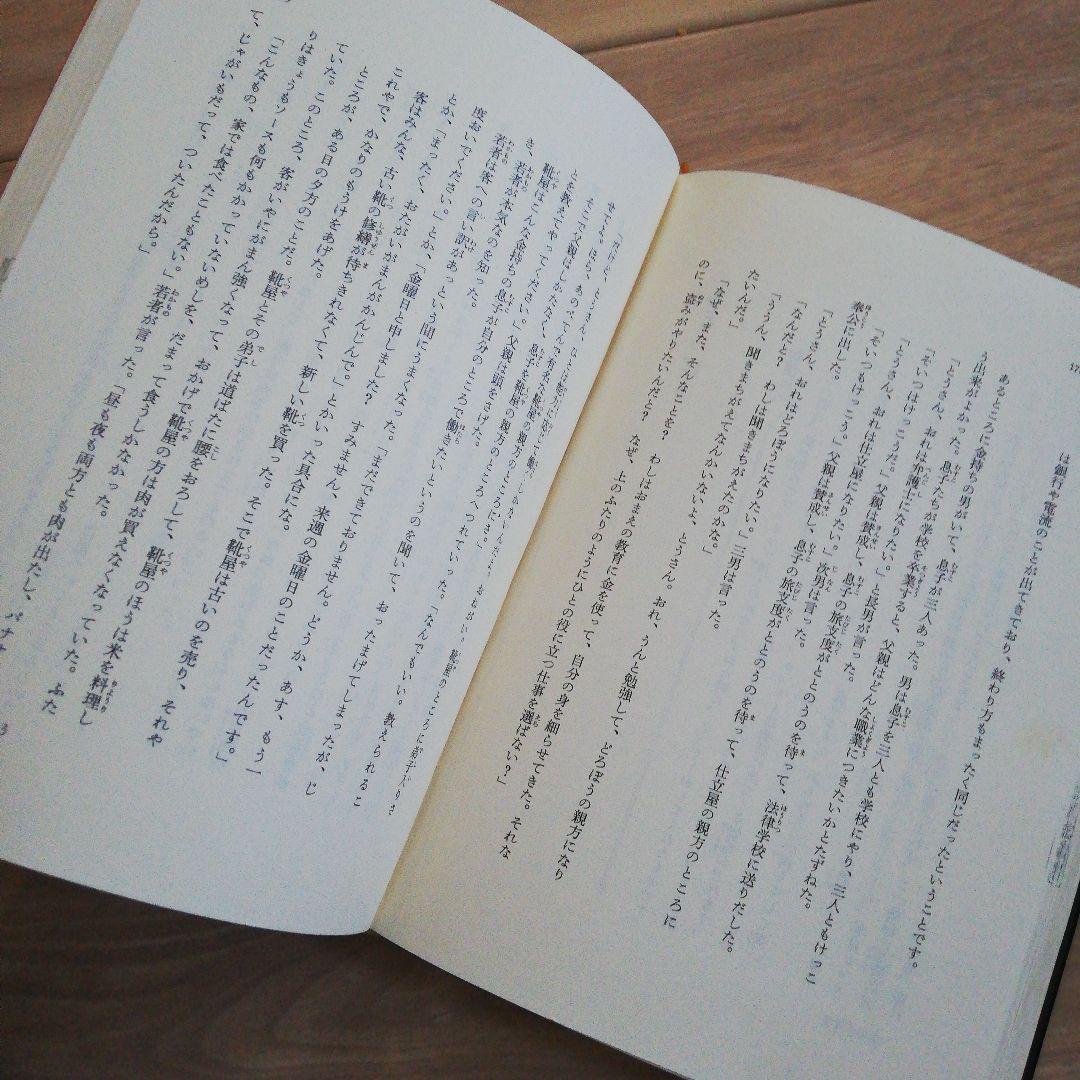 は銀行や電流のことが出てきており、終わり方もまったく同じだったということです。
あるところに金持ちの男がいて、息子が三人あった。男は息子を三人とも学校にやり、三人ともけっこ
う出来がよかった。息子たちが学校を卒業すると、父親はどんな職業につきたいかとたずねた。
「とうさん、おれは弁護士になりたい。」と長男が言った。
「そいつはけっこうだ。」父親は賛成し、息子の旅支度がととのうのを待って、法律学校に送りだした。
「とうさん、おれは仕立屋になりたい。」次男は言った。
「そいつもけっこう。」父親は賛成し、息子の旅支度がととのうのを待って、仕立屋の親方のところに
奉公に出した。
「とうさん、おれはどろぼうになりたい。」三男は言った。
「なんだと？　わしは聞きまちがえたのかな。」
「ううん、聞きまちがえてなんかいないよ、とうさん。おれ、うんと勉強して、どろぼうの親方になり
たいんだ。」
「なぜ、また、そんなことを？　わしはおまえの教育に金を使って、自分の身を細らせてきた。それな
のに、盗みがやりたいんだと？　なぜ、上のふたりのようにひとの役に立つ仕事を選ばない？」
「だけど、とうさん、
せてよ。ほら、あのぺてんで有名な靴屋の親方のところにさ。」
そこで父親はしかたなく、息子を靴屋の親方のところへつれていった。「なんでもいい。教えられるこ
とを教えてやってください。」父親は頭をさげた。
靴屋はこんな金持ちの息子が自分のところで働きたいというのを聞いて、おったまげてしまったが、じ
き、若者が本気なのを知った。
若者は客への言い訳があっという間にうまくなった。「まだできておりません。どうか、あす、もう一
度おいでください。」とか、「金曜日と申しました？　すみません、来週の金曜日のことだったんです。」
とか、「まったく、おたがいがまんがかんじんで。」とかいった具合にな。
客はみんな、古い靴の修繕が待ちきれなくて、新しい靴を買った。そこで靴屋は古いのを売り、それや
これやで、かなりのもうけをあげた。
ところが、ある日の夕方のことだ。靴屋とその弟子は道ばたに腰をおろして、靴屋のほうは米を料理し
ていた。このところ、客がいやにがまん強くなって、おかげで靴屋の方は肉が買えなくなっていた。ふた
りはきょうもソースも何もかかっていないめしを、だまって食うしかなかった。
「こんなもの、家では食べたこともない。」若者が言った。「昼も夜も両方とも肉が出たし、バナナ
て、じゃがいもだって、ついたんだから。」